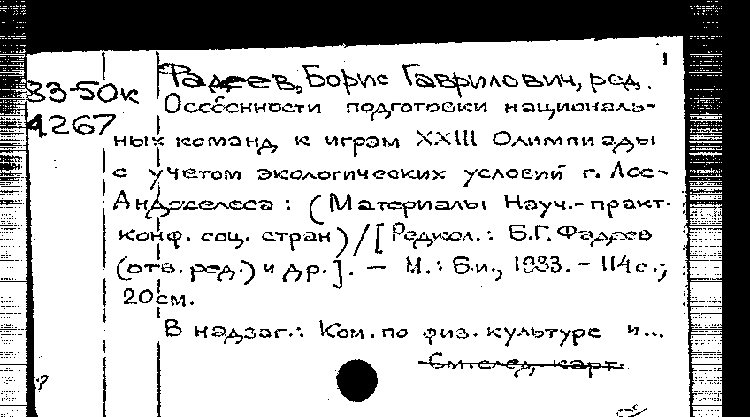 1
83-50к Фадеев, Борис Гаврилович, ред.
4267 Особенности подготовки националь-
ных команд к играм XXIII Олимпиады
с учетом экологических условий г. Лос-
Анджелеса: (Материалы Науч.-практ.
конф. соц. стран) / [Редкол.: Б.Г. Фадеев
(отв. ред.) и др.]. – М.: Б.и., 1983. – 114 с.;
20 см.
В надзаг.: Ком. по физ. культуре и...
См. след. карт.